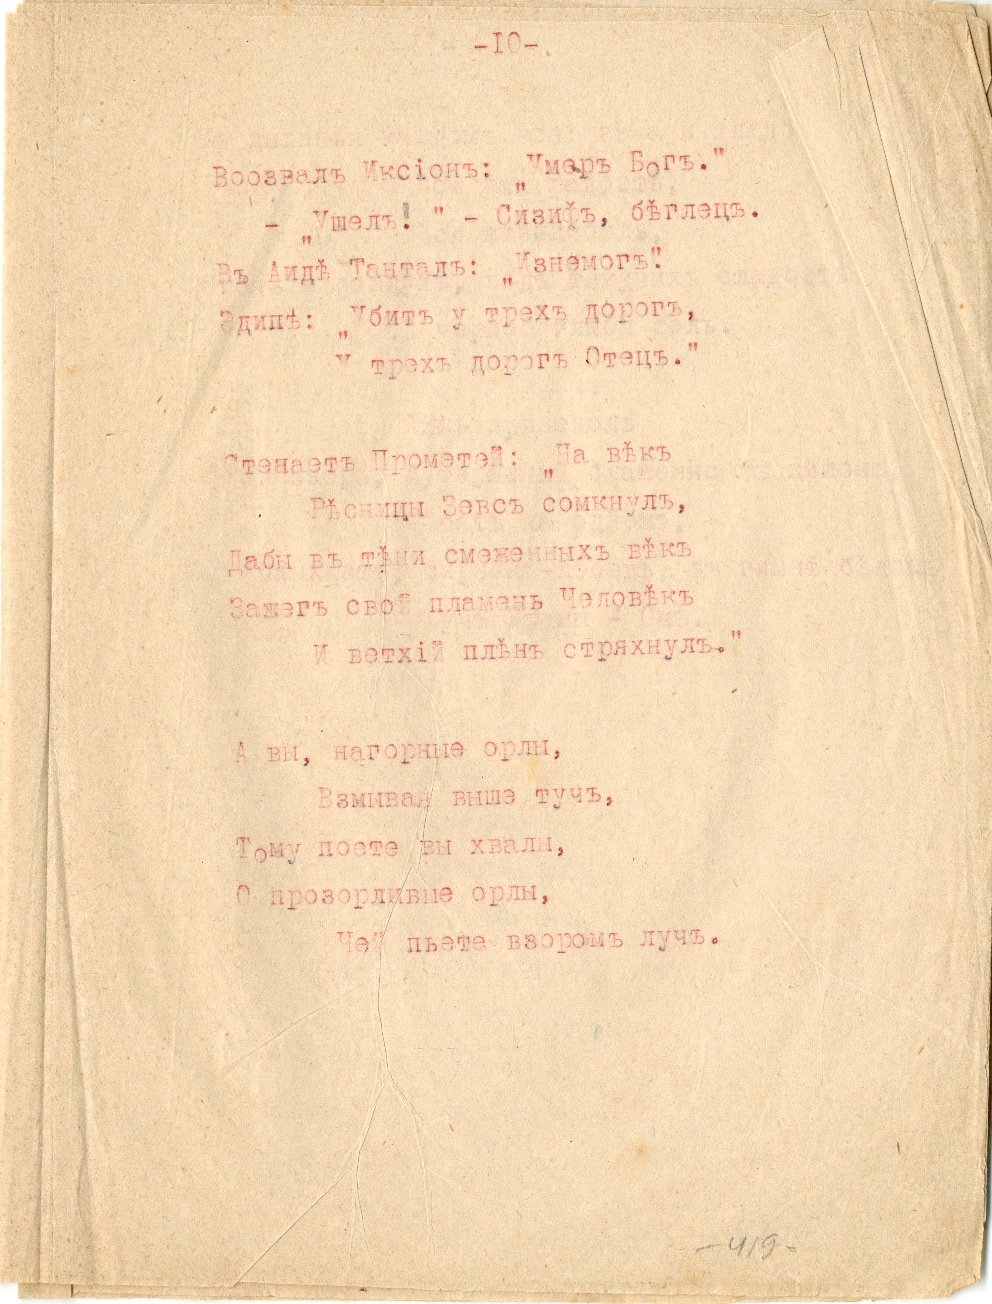 -10-
Воозвалъ Иксіонъ: „Умеръ Богъ."
- „Ушелъ! " - Сизифъ, бѣглецъ.
Въ Аидѣ Танталъ: „Изнемогъ".
Эдипѣ: „Убитъ у трехъ дорогъ,
У трехъ дорогъ Отецъ."
Стенаетъ Прометей: „На вѣкъ
Рѣсницы Зевсъ сомкнулъ,
Дабы въ тѣни смеженныхъ вѣкъ
Зажегъ свой пламень Человѣкъ
И ветхій плѣнъ стряхнулъ."
А вы, нагорные орлы,
Взмывая выше тучъ,
Тому поете вы хвалы,
О прозорливые орлы,
Чей пьете взоромъ лучъ.
-419-